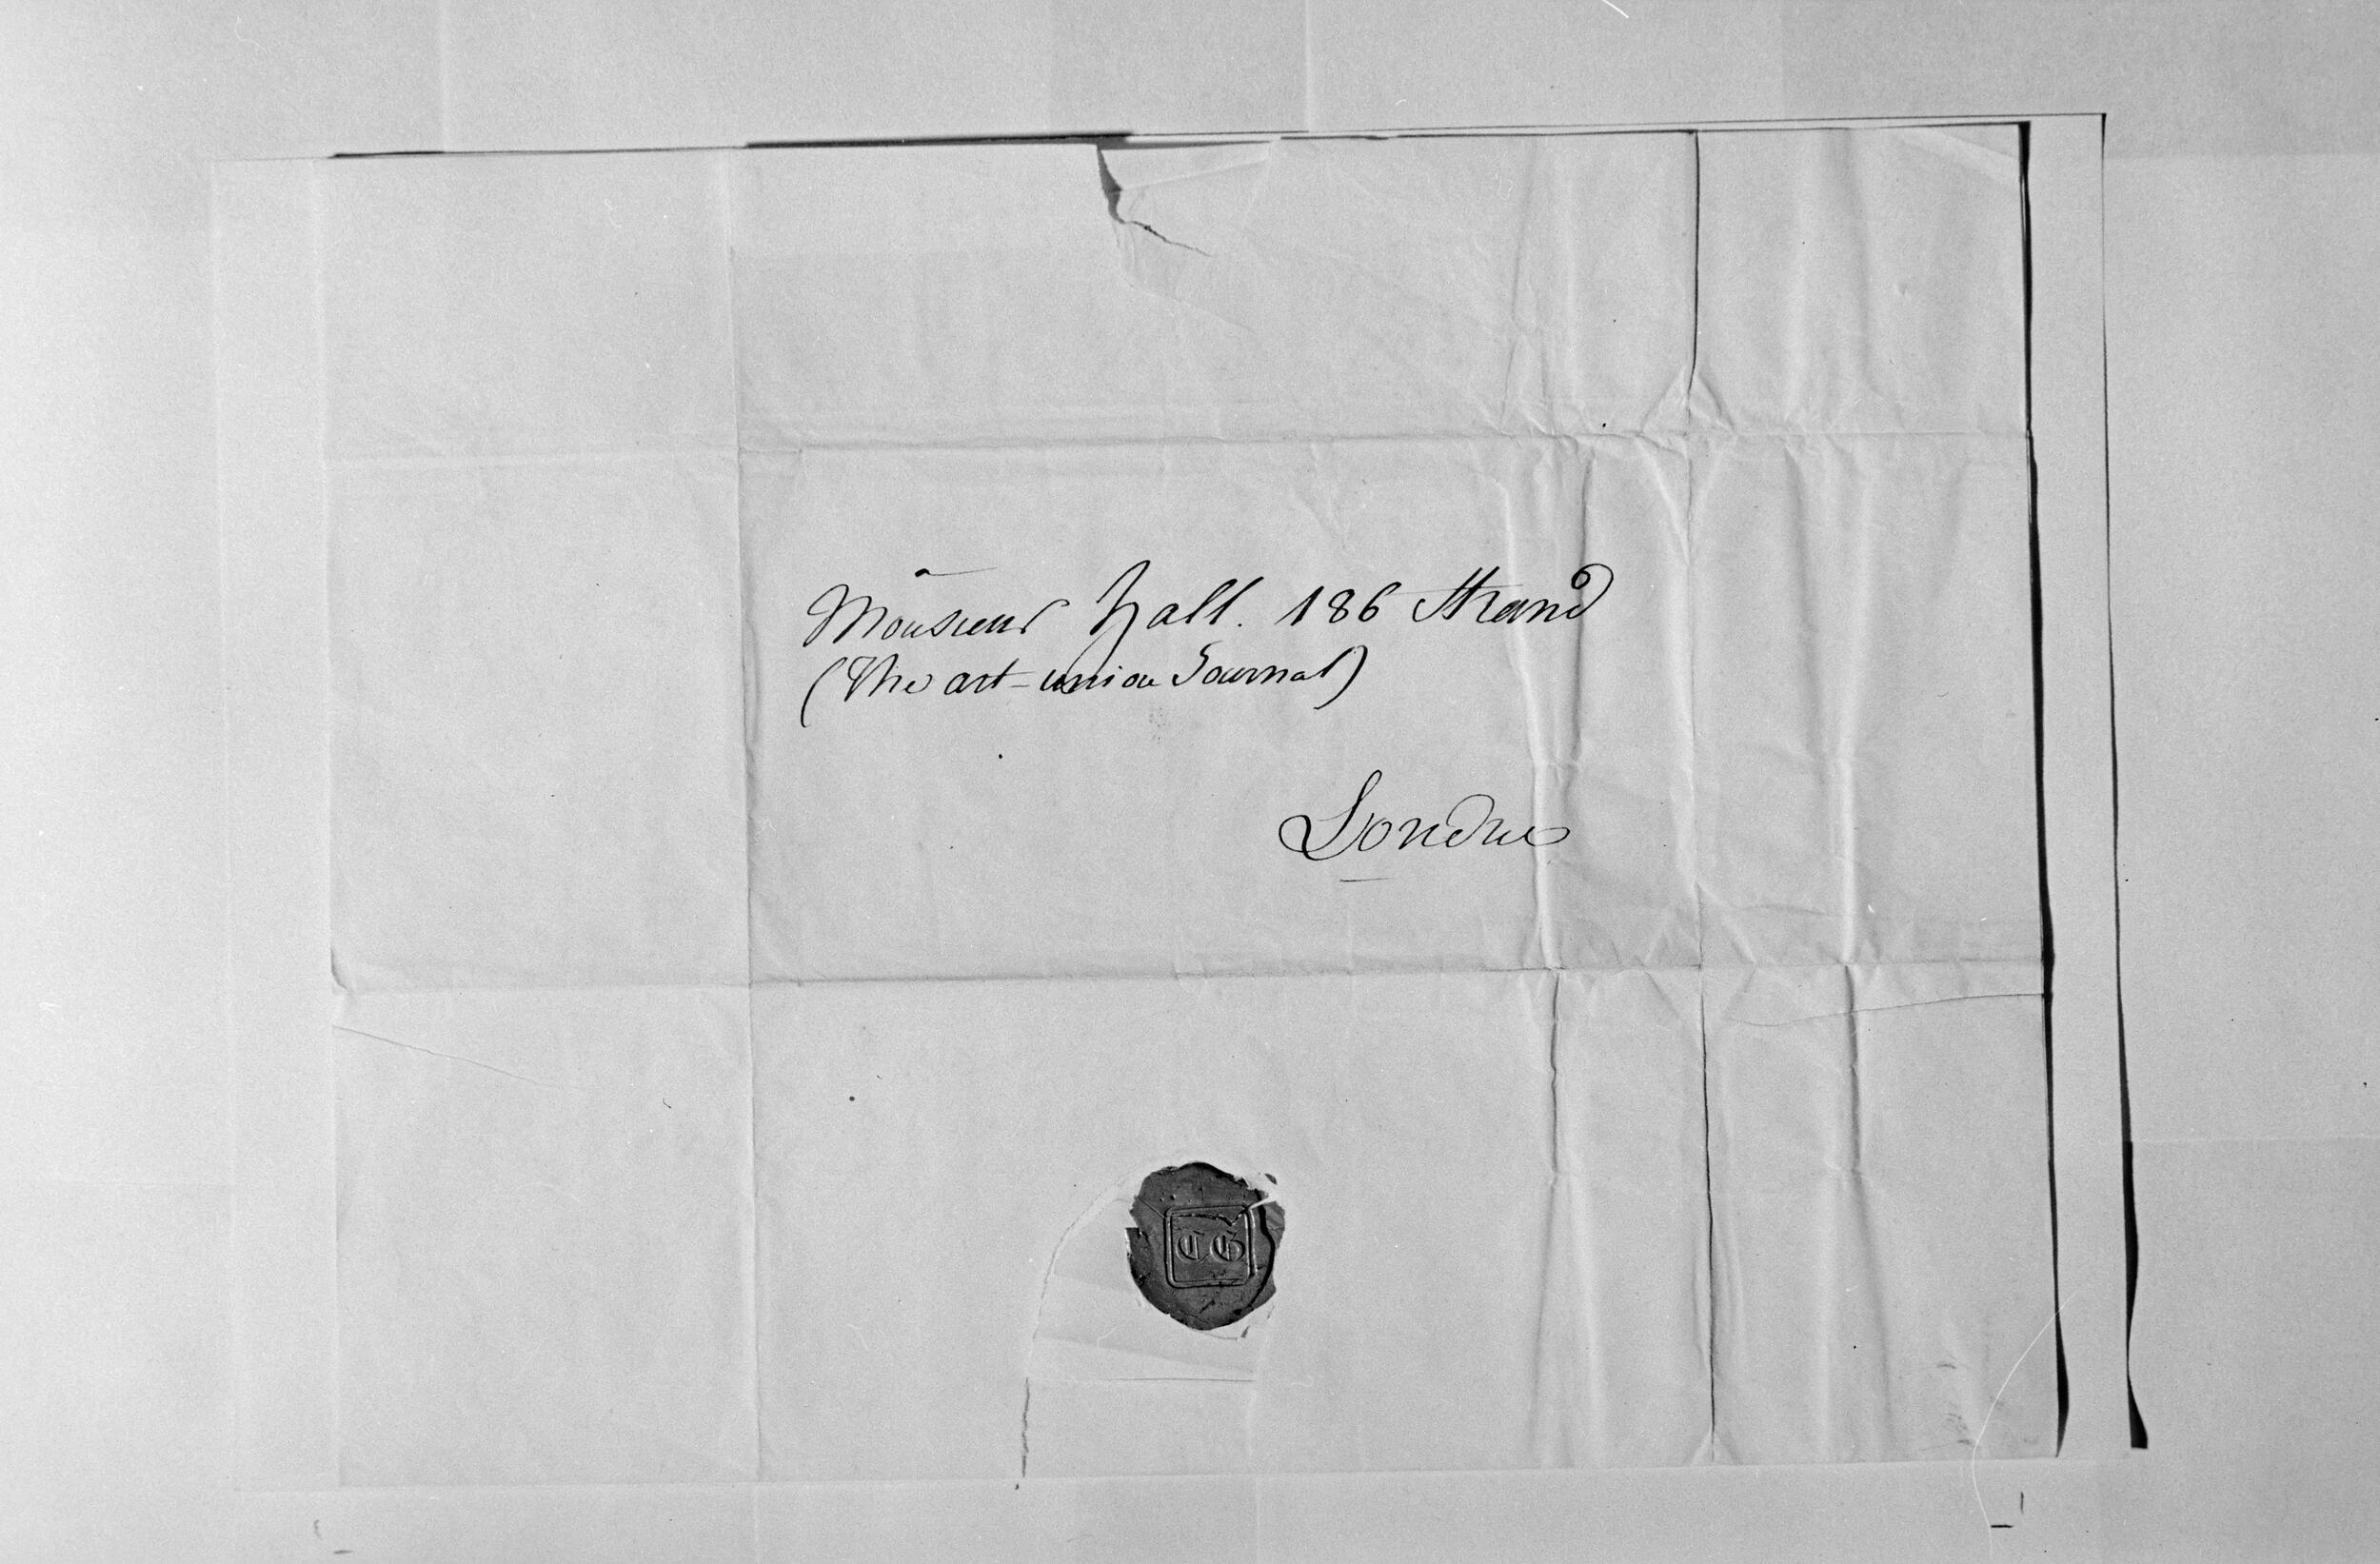 Monsieur Hall. 186 Strand
(The art-union Journal)
Londres
CG